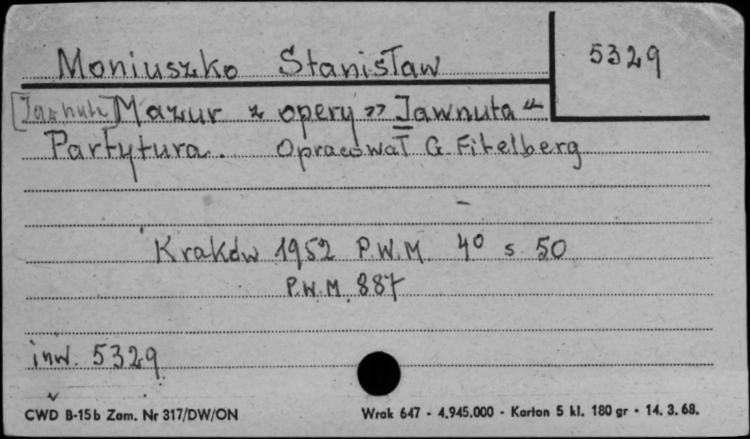 Moniuszko Stanisław
5329
Mazur z opery „Jawnuta"
Partytura. Opracował G. Fitelberg
Kraków 1952 P.W.M. 4° s. 50
P.W.M. 887
inw. 5329
CWD B-15b Zam. Nr 317/DW/ON
Wrak 647 - 4.945.000 - Karton 5 kl. 180 gr - 14. 3. 68.